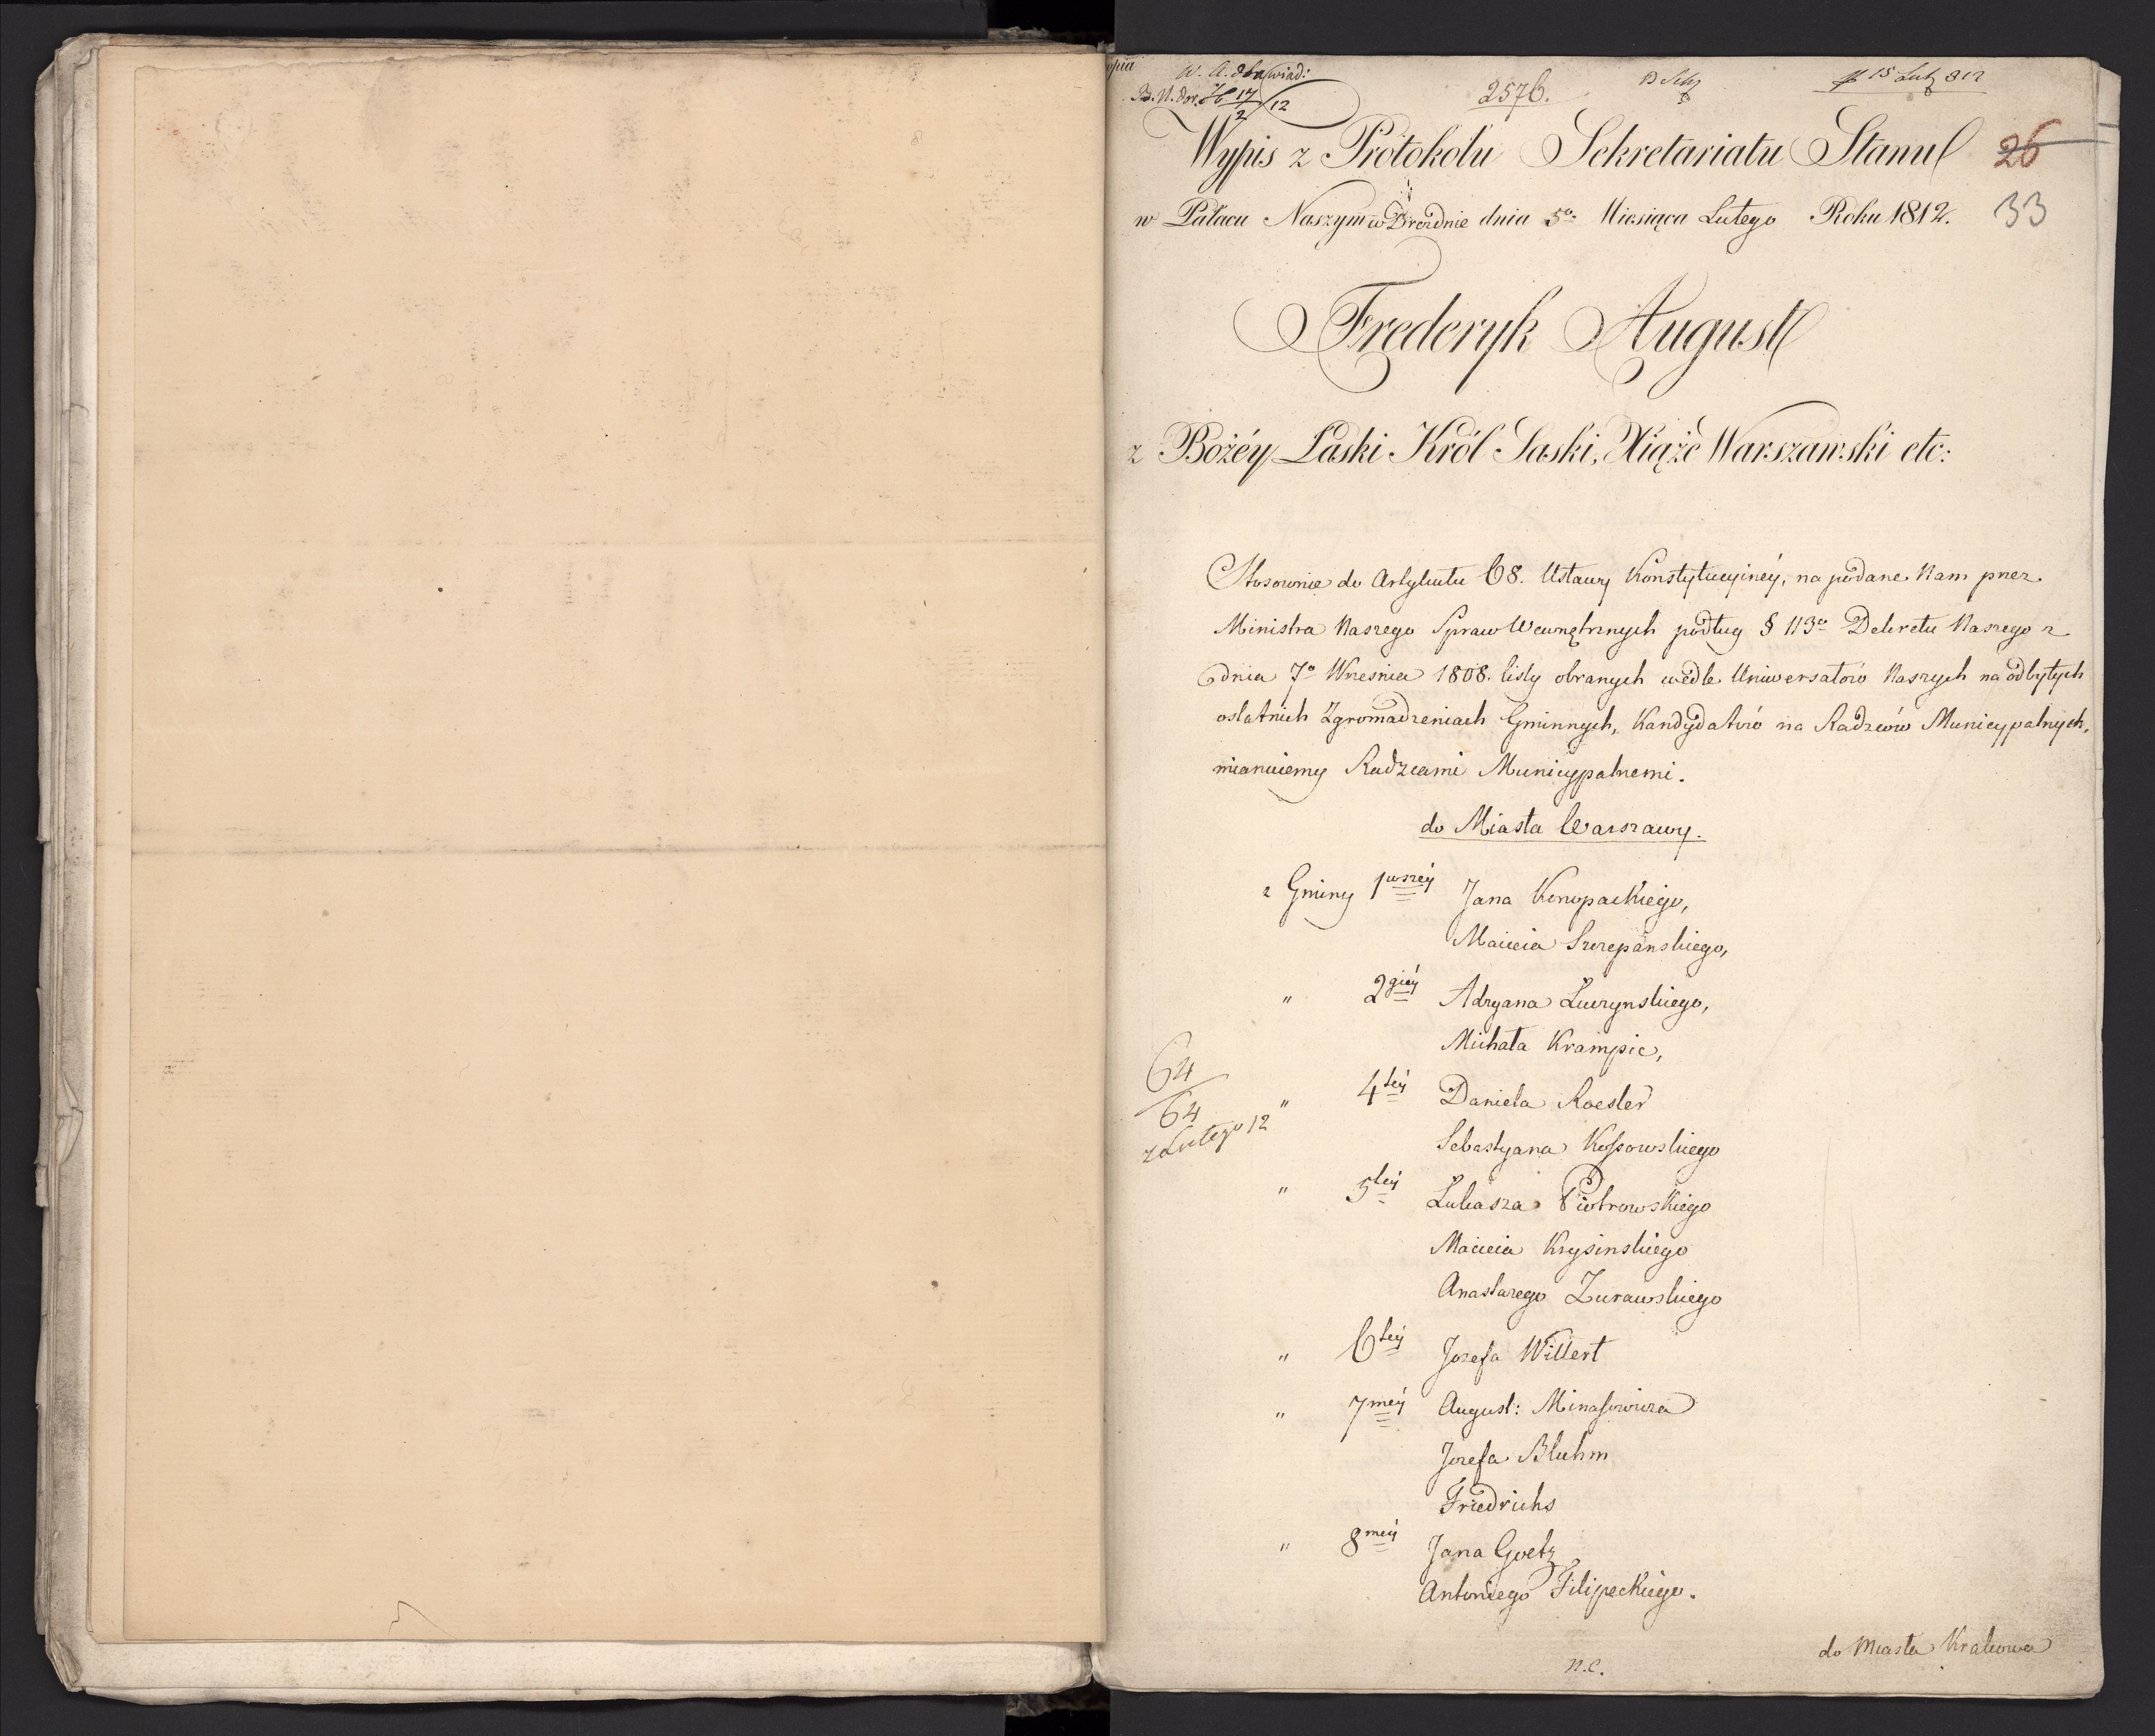 opia W. A. dla wiad:
2576.
15 Lut 812
17/2 12
Wypis z Protokolu Sekretariatu Stanu 26
w Pałacu Naszym w Dreźdnie dnia 5o. Miesiąca Lutego Roku 1812. 33
Frederyk August
z Bożéy Łaski Król Saski, Xiąże Warszawski etc:
Stosownie do Artykułu 68. Ustawy Konstytucyinéy, na podane Nam przez
Ministra Naszego Spraw Wewnętrznych podług § 113o Dekretu Naszego z
dnia 7o Wrzesnia 1808. listy obranych wedle Uniwersałow Naszych na odbytych
ostatnich Zgromadzeniach Gminnych, Kandydatów na Radzców Municypalnych,
mianuiemy Radzcami Municypalnemi.
do Miasta Warszawy.
z Gminy 1wszéy Jana Konopackiego,
Macieia Szczepanskiego,
" 2giéy Adryana Łuczynskiego,
Michała Krampic,
64
" 4téy Daniela Roesler
64
z Lutego 12
Sebastyana Kossowskiego
" 5téy Łukasza Piotrowskiego
Macieia Krysinskiego
Anastazego Zurawskiego
" 6téy Jozefa Willert
" 7méy August: Minasowicza
Jozefa Bluhm
Friedrichs
" 8méy Jana Goetz
Antoniego Filipeckiego.
do Miasta Krakowa
n.c.